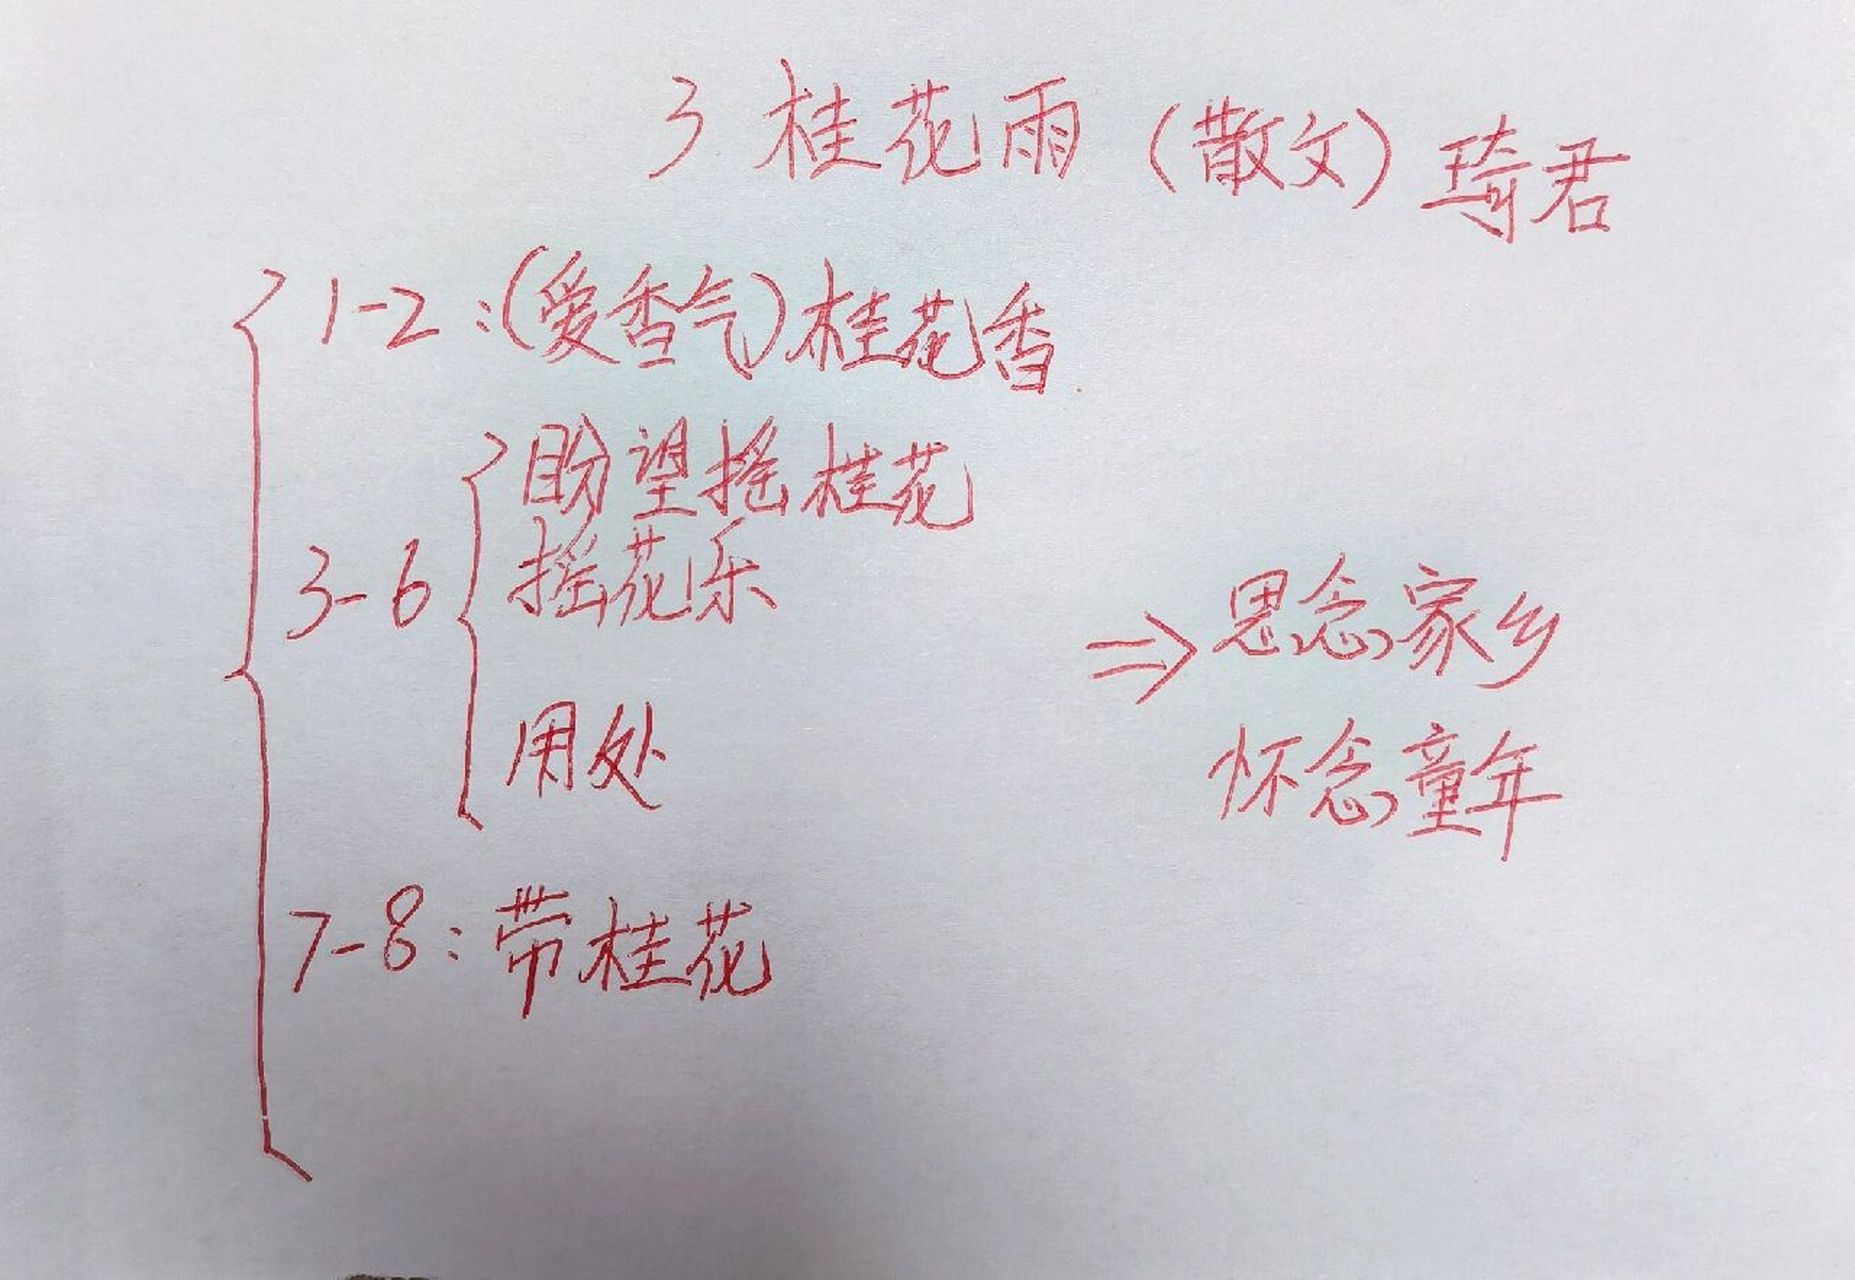 3 桂花雨（散文）琦君
1-2：(爱香气)桂花香
盼望摇桂花
3-6
摇花乐
用处
⇒思念家乡
怀念童年
7-8：带桂花